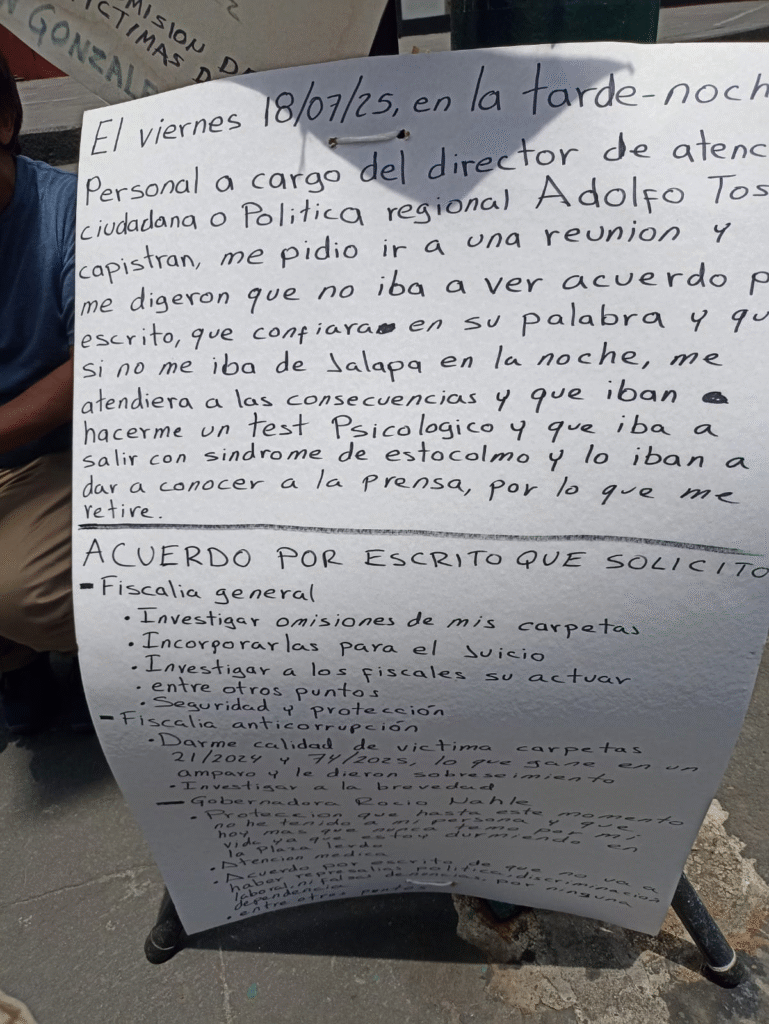 MISION D
CTIMAS D
GONZALE
El viernes 18/07/25, en la tarde-noch
Personal a cargo del director de atenc
ciudadana o Politica regional Adolfo Tos
capistran, me pidio ir a una reunion y
me digeron que no iba a ver acuerdo p
escrito, que confiara en su palabra y qu
si no me iba de Jalapa en la noche, me
atendiera a las consecuencias y que iban a
hacerme un test Psicologico y que iba a
salir con sindrome de estocolmo y lo iban a
dar a conocer a la prensa, por lo que me
retire.
ACUERDO POR ESCRITO QUE SOLICITO
- Fiscalia general
• Investigar omisiones de mis carpetas
• Incorporarlas para el Juicio
• Investigar a los fiscales su actuar
• entre otros puntos
• Seguridad y protección
- Fiscalia anticorrupción
• Darme calidad de victima carpetas
21/2024 y 74/2025, lo que gane en un
amparo y le dieron sobreseimiento
• Investigar a la brevedad
- Gobernadora Rocio Nahle
• Proteccion que hasta este momento
no he tenido a mi persona y que
hoy mas que nunca temo por mi
vida ya que estoy durmiendo en
la Plaza lerdo
• Atencion medica
• Acuerdo por escrito de que no va a
haber represalias, politica, discriminacion
laboral, ni falsas denuncias, por ninguna
dependencia
• entre otros puntos